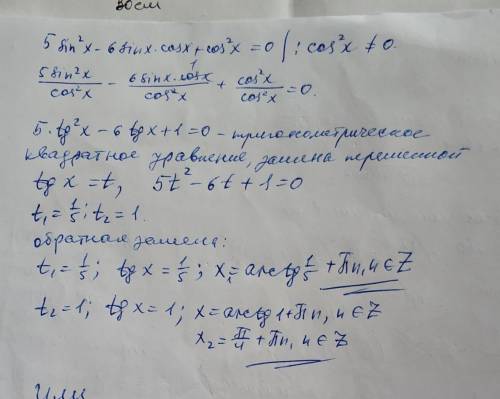 30см
5 sin²x - 6 sinx·cosx + cos²x = 0 | : cos²x ≠ 0.
5sin²x/cos²x - 6sinx·cosx/cos²x + cos²x/cos²x = 0.
5·tg²x - 6 tgx + 1 = 0 - тригонометрическое
квадратное уравнение, замена переменной
tg x = t, 5t² - 6t + 1 = 0
t₁ = 1/5; t₂ = 1.
обратная замена:
t₁ = 1/5; tg x = 1/5; x₁ = arctg 1/5 + Πn, n ∈ Z
t₂ = 1; tg x = 1; x = arctg 1 + Πn, n ∈ Z
x₂ = Π/4 + Πn, n ∈ Z
Или